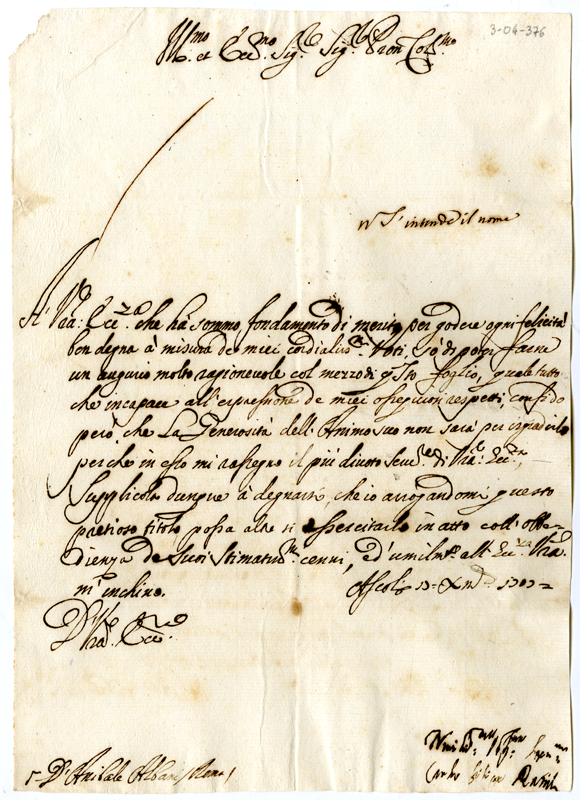 3-04-376
Ill.mo et Ecc.mo Sig.re Sig.re Pron Col.mo
S'intende il nome
A V̄ra: Ecc.za che hà sommo fondamento di merito per godere ogni felicità
ben degna à misura de miei cordialiss.mi Voti, sò di poter farne
un augurio molto ragionevole col mezzo di q̄sto foglio, quale tutto
che incapace all'espressione de miei ossequiosi respetti, confido
però che La Generosità dell'Animo suo non sarà per isgradirlo
perche in esso mi rassegno il più divoto Serv.re di V̄ra Ecc.za
Supplicola dunque à degnarsi, che io arrogandomi questo
pretioso titolo possa altresì essercitarlo in atto coll'obbe
dienza de Suoi Stimatiss.mi cenni, ed umilm.te all'Ecc.za V̄ra
m'inchino. Ascoli 13 Xm
D V̄ra Ecc.za
D. Anibale Albani Roma